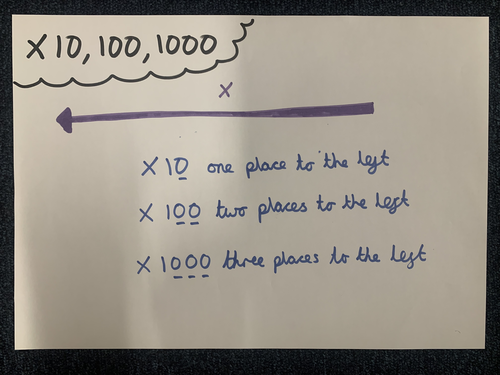 × 10, 100, 1000
×
× 10 one place to the left
× 100 two places to the left
× 1000 three places to the left